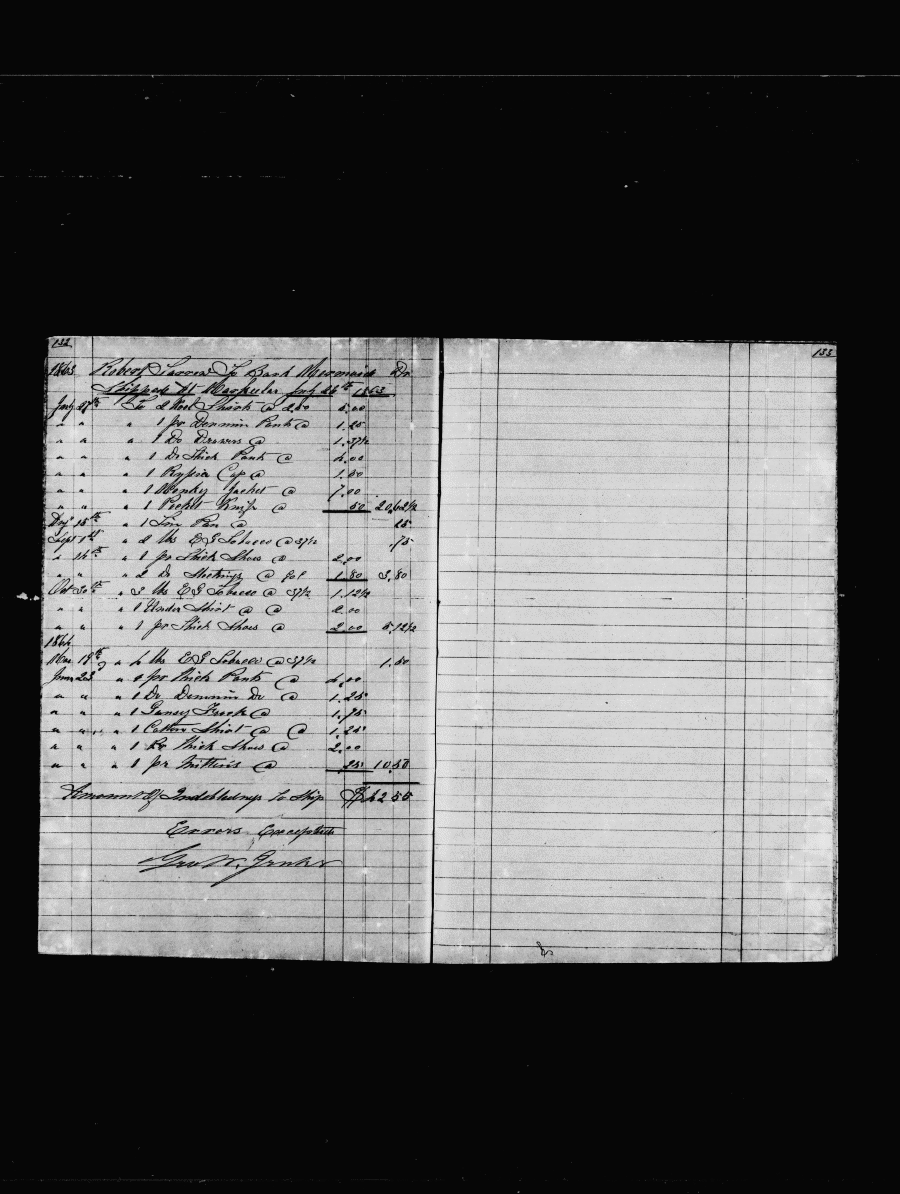 132
133
1863 Robert To Bark Mermaid Dr
Shipped At July 26th 1863
July 27th To 2 Wool Shirts @ 2.50 5.00
" " " 1 pr Denmin Pants @ 1.25
" " " 1 Do Drawers @ 1.37½
" " " 1 Do Thick Pants @ 4.00
" " " 1 Cap @ 1.50
" " " 1 Monkey Jacket @ 7.00
" " " 1 Pocket Knife @ 50 20,62½
15th " 1 Tin Pan @ 25
Sept 1st " 2 lbs Tobacco @ 37½ .75
" 14th " 1 pr Thick Shoes @ 2.00
" " " 2 Do Stockings @ 90¢ 1.80 3,80
Oct 30th " 3 lbs Tobacco @ 37½ 1.12½
" " " 1 Under Shirt @ @ 2.00
" " " 1 pr Thick Shoes @ 2.00 5,12½
1864
Mar 19th " 4 lbs Tobacco @ 37½ 1.50
June 23 " 1 pr Thick Pants @ 4.00
" " " 1 Do Denmin Do @ 1.25
" " " 1 Gansey Frock @ 1.75
" " " 1 Cotton Shirt @ @ 1,25
" " " 1 Do Thick Shoes @ 2.00
" " " 1 pr Mittins @ 25 10.50
Amount Of Indebtedness To Ship $42 55
Errors Excepted
Geo W.